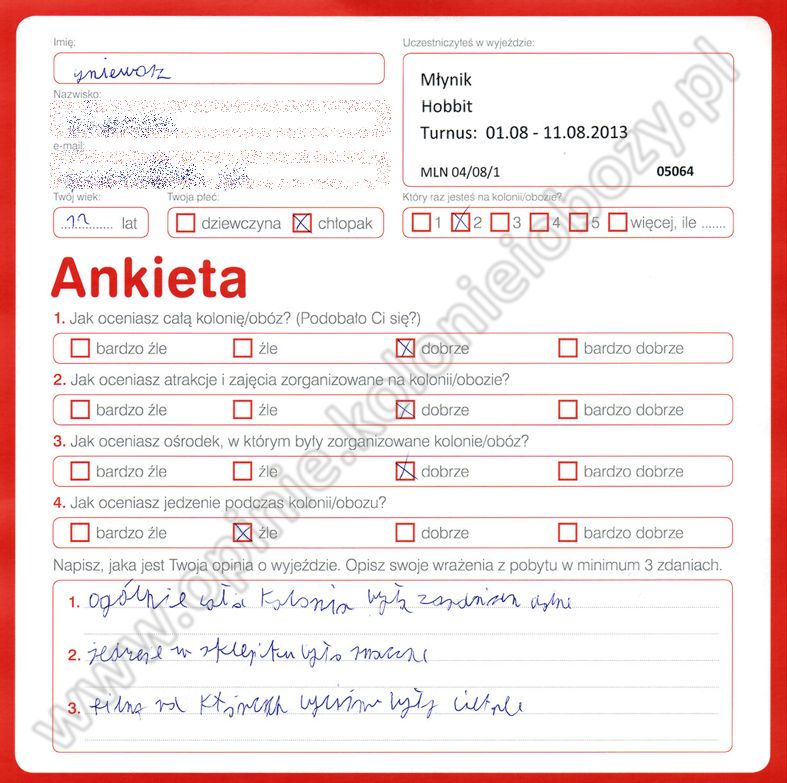 Imię:
Uczestniczyłeś w wyjeździe:
gniewosz
Młynik
Hobbit
Turnus: 01.08 - 11.08.2013
MLN 04/08/1 05064
Nazwisko:
e-mail:
Twój wiek: Twoja płeć: Który raz jesteś na kolonii/obozie?
11 lat dziewczyna chłopak 1 2 3 4 5 więcej, ile .......
Ankieta
1. Jak oceniasz całą kolonię/obóz? (Podobało Ci się?)
bardzo źle źle dobrze bardzo dobrze
2. Jak oceniasz atrakcje i zajęcia zorganizowane na kolonii/obozie?
bardzo źle źle dobrze bardzo dobrze
3. Jak oceniasz ośrodek, w którym były zorganizowane kolonie/obóz?
bardzo źle źle dobrze bardzo dobrze
4. Jak oceniasz jedzenie podczas kolonii/obozu?
bardzo źle źle dobrze bardzo dobrze
Napisz, jaka jest Twoja opinia o wyjeździe. Opisz swoje wrażenia z pobytu w minimum 3 zdaniach.
1. ogólnie cała kolonia była
2. w sklepiku było smaczne
3. na których były
www.opinie.kolonieiobozy.pl